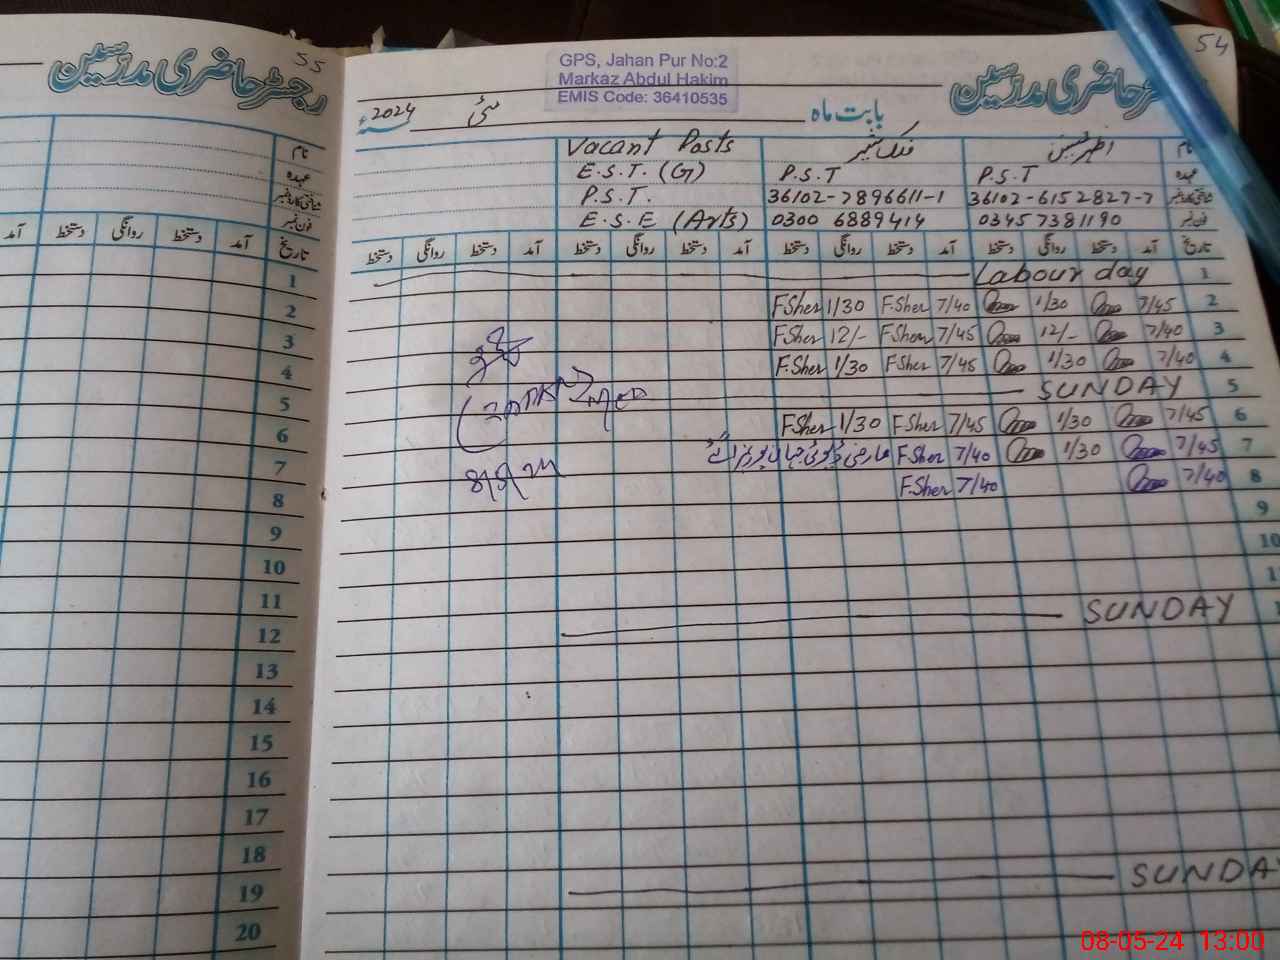 55
رجسٹر حاضری مدرسین
نام
عہدہ
شناختی کارڈ نمبر
فون نمبر
تاریخ آمد دستخط روانگی دستخط آمد
1
2
3
4
5
6
7
8
9
10
11
12
13
14
15
16
17
18
19
20
54
رجسٹر حاضری مدرسین
GPS, Jahan Pur No:2
Markaz Abdul Hakim
EMIS Code: 36410535
بابت ماہ مئی 2024ء
نام فلک شیر Vacant Posts
P.S.T P.S.T E.S.T. (G)
شناختی کارڈ نمبر 36102-6152827-7 36102-7896611-1 P.S.T.
فون نمبر 03457381190 0300 6889414 E.S.E (Arts)
تاریخ آمد دستخط روانگی دستخط آمد دستخط روانگی دستخط آمد دستخط روانگی دستخط آمد دستخط روانگی دستخط
1 Labour day
2 7/45 1/30 7/40 F.Sher 1/30 F.Sher
3 7/40 12/- 7/45 F.Sher 12/- F.Sher
4 7/40 1/30 7/45 F.Sher 1/30 F.Sher
5 SUNDAY
6 7/45 1/30 7/45 F.Sher 1/30 F.Sher
7 7/45 1/30 7/40 F.Sher عارضی ڈیوٹی
8 7/40 7/40 F.Sher
9
10
SUNDAY
SUNDA
08-05-24 13:00